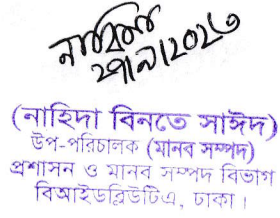 ২০২৩
(নাহিদা বিনতে সাঈদ)
উপ-পরিচালক (মানব সম্পদ)
প্রশাসন ও মানব সম্পদ বিভাগ
বিআইডব্লিউটিএ, ঢাকা।